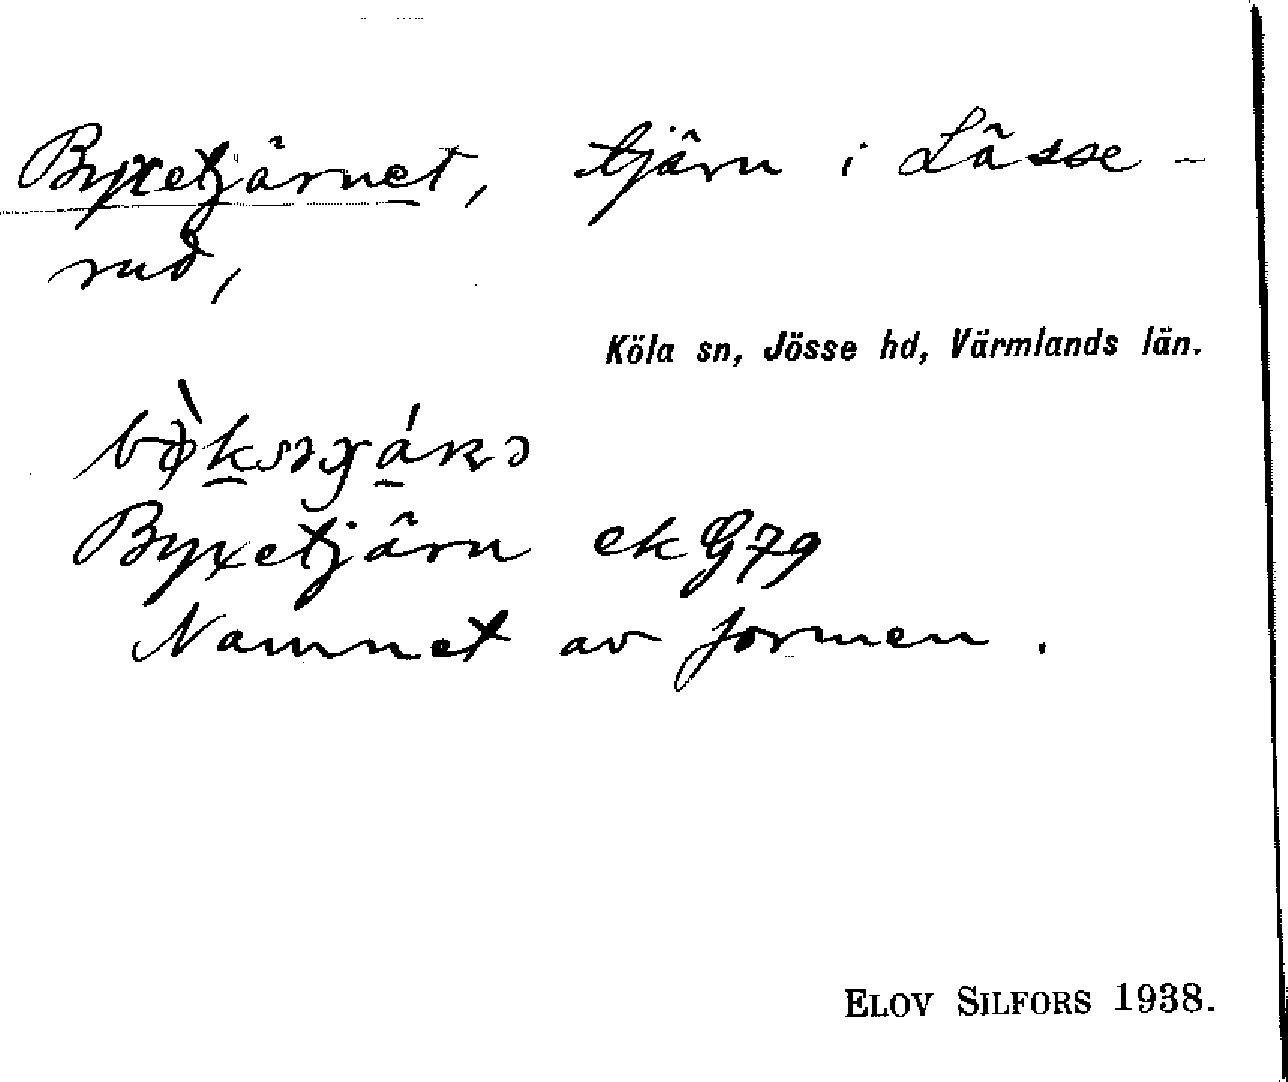 Byxetjärnet, tjärn i Lässe-
rud,
Köla sn, Jösse hd, Värmlands län.
Byxetjärn ek G79
Namnet av formen.
ELOV SILFORS 1938.